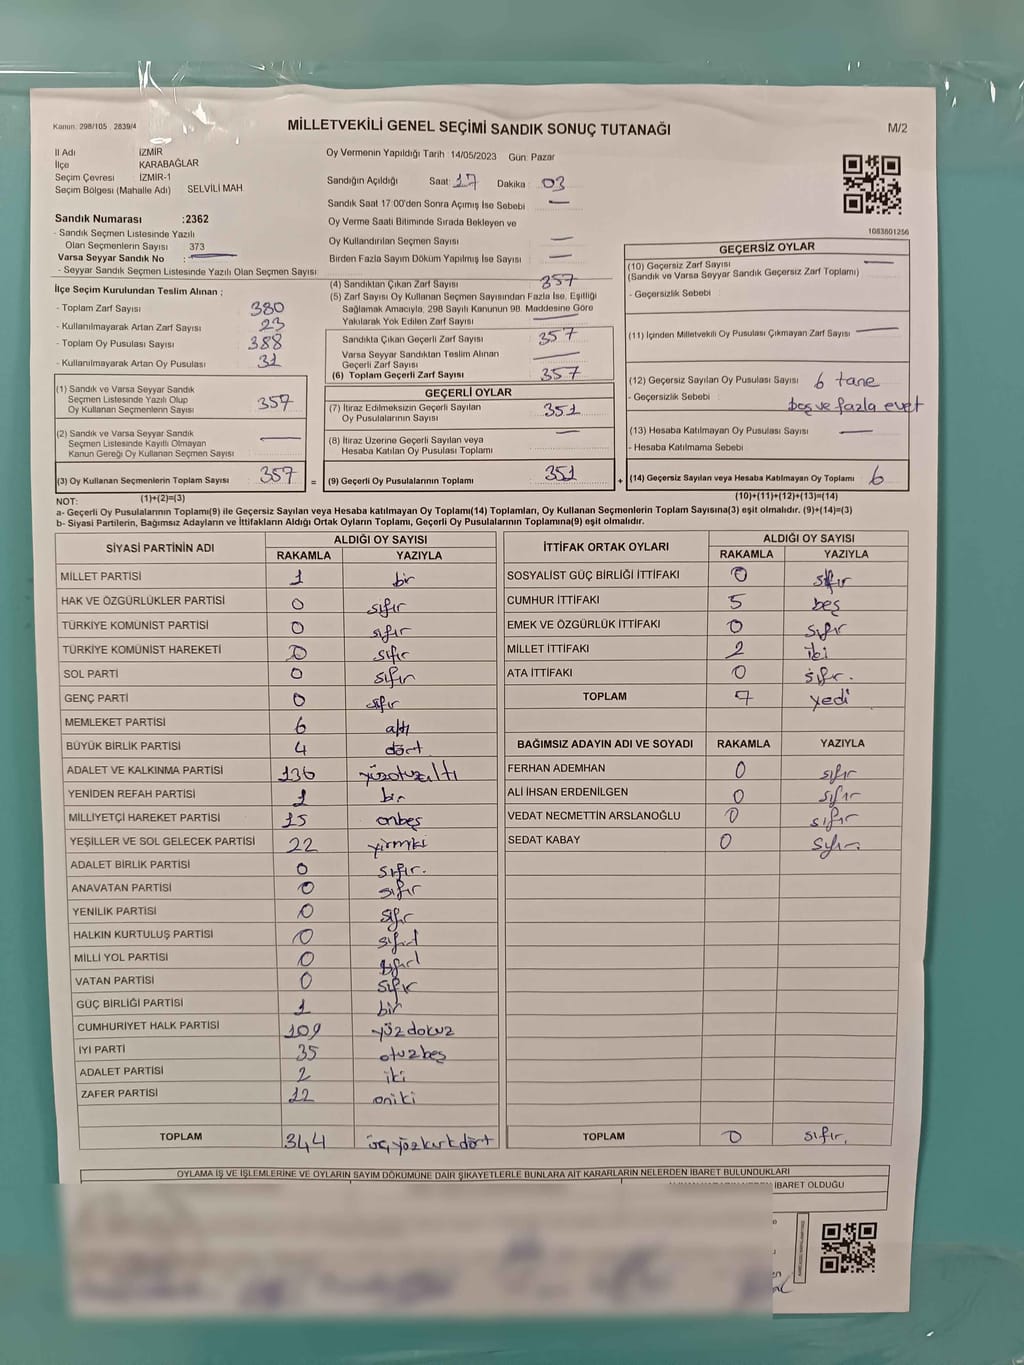 Kanun: 298/105 2839/4
MİLLETVEKİLİ GENEL SEÇİMİ SANDIK SONUÇ TUTANAĞI
M/2
İl Adı İZMİR
İlçe KARABAĞLAR
Seçim Çevresi İZMİR-1
Seçim Bölgesi (Mahalle Adı) SELVİLİ MAH
Sandık Numarası :2362
- Sandık Seçmen Listesinde Yazılı
Olan Seçmenlerin Sayısı 373
Varsa Seyyar Sandık No :
- Seyyar Sandık Seçmen Listesinde Yazılı Olan Seçmen Sayısı:
İlçe Seçim Kurulundan Teslim Alınan :
- Toplam Zarf Sayısı 380
- Kullanılmayarak Artan Zarf Sayısı 23
- Toplam Oy Pusulası Sayısı 388
- Kullanılmayarak Artan Oy Pusulası 31
(1) Sandık ve Varsa Seyyar Sandık
Seçmen Listesinde Yazılı Olup
Oy Kullanan Seçmenlerin Sayısı 357
(2) Sandık ve Varsa Seyyar Sandık
Seçmen Listesinde Kayıtlı Olmayan
Kanun Gereği Oy Kullanan Seçmen Sayısı —
(3) Oy Kullanan Seçmenlerin Toplam Sayısı 357 =
Oy Vermenin Yapıldığı Tarih : 14/05/2023 Gün: Pazar
Sandığın Açıldığı Saat: 17 Dakika 03
Sandık Saat 17:00'den Sonra Açımış İse Sebebi —
Oy Verme Saati Bitiminde Sırada Bekleyen ve
Oy Kullandırılan Seçmen Sayısı —
Birden Fazla Sayım Döküm Yapılmış İse Sayısı —
(4) Sandıktan Çıkan Zarf Sayısı 357
(5) Zarf Sayısı Oy Kullanan Seçmen Sayısından Fazla İse, Eşitliği
Sağlamak Amacıyla, 298 Sayılı Kanunun 98. Maddesine Göre
Yakılarak Yok Edilen Zarf Sayısı —
Sandıkta Çıkan Geçerli Zarf Sayısı 357
Varsa Seyyar Sandıktan Teslim Alınan
Geçerli Zarf Sayısı —
(6) Toplam Geçerli Zarf Sayısı 357
GEÇERLİ OYLAR
(7) İtiraz Edilmeksizin Geçerli Sayılan
Oy Pusulalarının Sayısı 351
(8) İtiraz Üzerine Geçerli Sayılan veya
Hesaba Katılan Oy Pusulası Toplamı —
(9) Geçerli Oy Pusulalarının Toplamı 351 +
1083601256
GEÇERSİZ OYLAR
(10) Geçersiz Zarf Sayısı —
(Sandık ve Varsa Seyyar Sandık Geçersiz Zarf Toplamı)
- Geçersizlik Sebebi :
(11) İçinden Milletvekili Oy Pusulası Çıkmayan Zarf Sayısı —
(12) Geçersiz Sayılan Oy Pusulası Sayısı 6 tane
- Geçersizlik Sebebi : boş ve fazla evet
(13) Hesaba Katılmayan Oy Pusulası Sayısı —
- Hesaba Katılmama Sebebi
(14) Geçersiz Sayılan veya Hesaba Katılmayan Oy Toplamı 6
NOT: (1)+(2)=(3) (10)+(11)+(12)+(13)=(14)
a- Geçerli Oy Pusulalarının Toplamı(9) ile Geçersiz Sayılan veya Hesaba katılmayan Oy Toplamı(14) Toplamları, Oy Kullanan Seçmenlerin Toplam Sayısına(3) eşit olmalıdır. (9)+(14)=(3)
b- Siyasi Partilerin, Bağımsız Adayların ve İttifakların Aldığı Ortak Oyların Toplamı, Geçerli Oy Pusulalarının Toplamına(9) eşit olmalıdır.
SİYASİ PARTİNİN ADI ALDIĞI OY SAYISI
RAKAMLA YAZIYLA
MİLLET PARTİSİ 1 bir
HAK VE ÖZGÜRLÜKLER PARTİSİ 0 sıfır
TÜRKİYE KOMÜNİST PARTİSİ 0 sıfır
TÜRKİYE KOMÜNİST HAREKETİ 0 sıfır
SOL PARTİ 0 sıfır
GENÇ PARTİ 0 sıfır
MEMLEKET PARTİSİ 6 altı
BÜYÜK BİRLİK PARTİSİ 4 dört
ADALET VE KALKINMA PARTİSİ 136 yüzotuzaltı
YENİDEN REFAH PARTİSİ 1 bir
MİLLİYETÇİ HAREKET PARTİSİ 15 onbeş
YEŞİLLER VE SOL GELECEK PARTİSİ 22 yirmiki
ADALET BİRLİK PARTİSİ 0 sıfır.
ANAVATAN PARTİSİ 0 sıfır
YENİLİK PARTİSİ 0 sıfır
HALKIN KURTULUŞ PARTİSİ 0 sıfır
MİLLİ YOL PARTİSİ 0 sıfır
VATAN PARTİSİ 0 sıfır
GÜÇ BİRLİĞİ PARTİSİ 1 bir
CUMHURİYET HALK PARTİSİ 109 yüzdokuz
İYİ PARTİ 35 otuzbeş
ADALET PARTİSİ 2 iki
ZAFER PARTİSİ 12 oniki
TOPLAM 344 üçyüzkırkdört
İTTİFAK ORTAK OYLARI ALDIĞI OY SAYISI
RAKAMLA YAZIYLA
SOSYALİST GÜÇ BİRLİĞİ İTTİFAKI 0 sıfır
CUMHUR İTTİFAKI 5 beş
EMEK VE ÖZGÜRLÜK İTTİFAKI 0 sıfır
MİLLET İTTİFAKI 2 iki
ATA İTTİFAKI 0 sıfır.
TOPLAM 7 yedi
BAĞIMSIZ ADAYIN ADI VE SOYADI RAKAMLA YAZIYLA
FERHAN ADEMHAN 0 sıfır
ALİ İHSAN ERDENİLGEN 0 sıfır
VEDAT NECMETTİN ARSLANOĞLU 0 sıfır
SEDAT KABAY 0 sıfır
TOPLAM 0 sıfır.
OYLAMA İŞ VE İŞLEMLERİNE VE OYLARIN SAYIM DÖKÜMÜNE DAİR ŞİKAYETLERLE BUNLARA AİT KARARLARIN NELERDEN İBARET BULUNDUKLARI
İBARET OLDUĞU